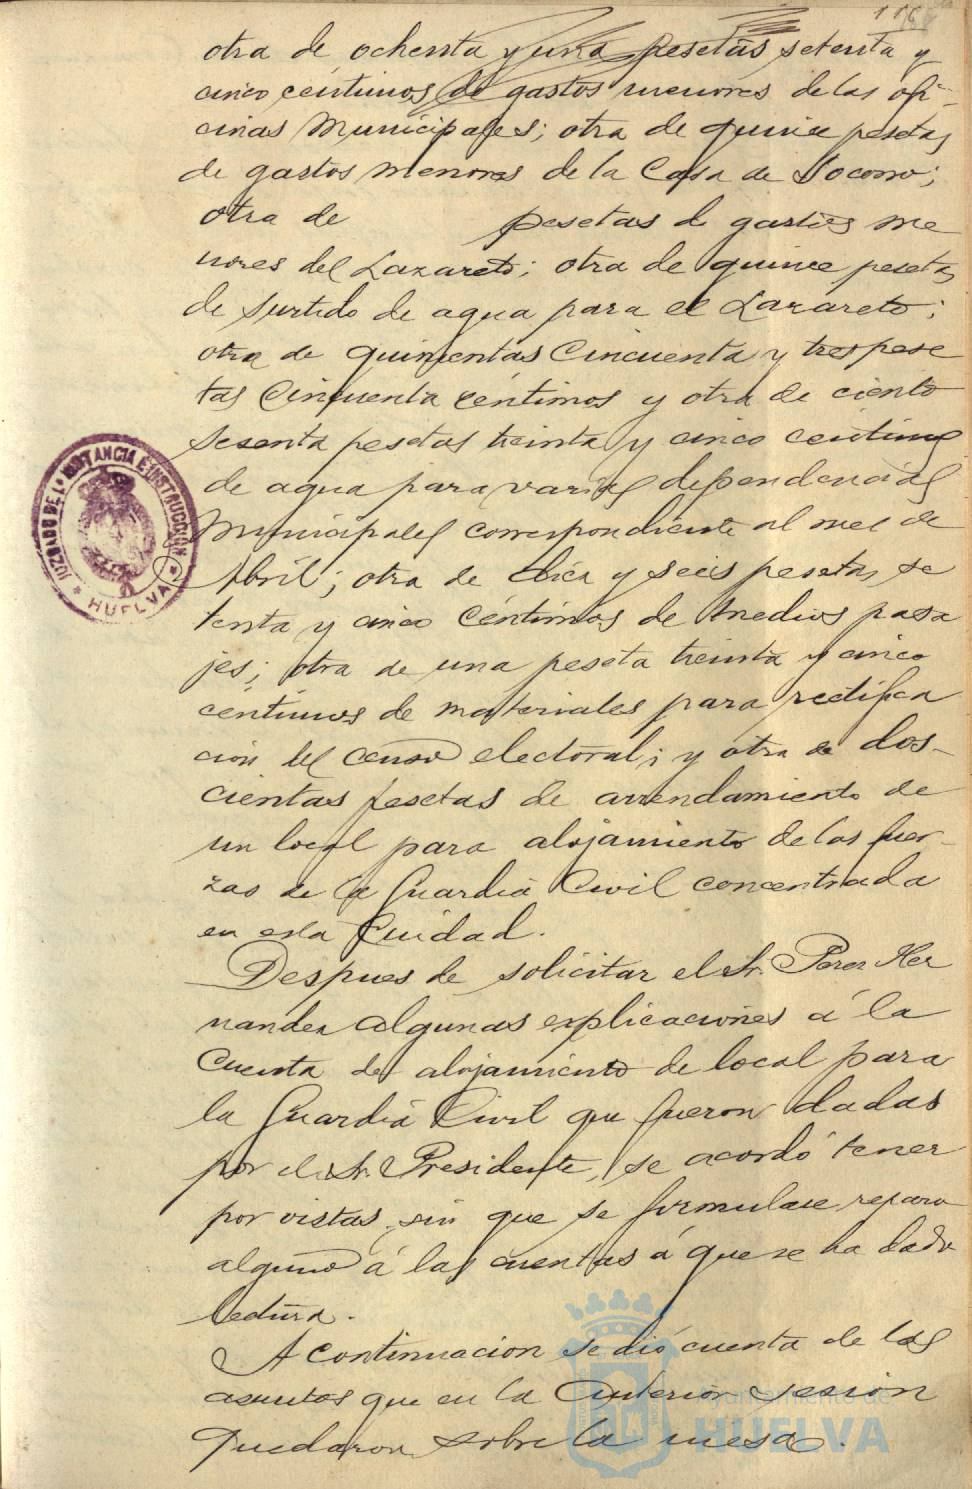 116
otra de ochenta y una pesetas setenta y
cinco céntimos de gastos menores de las ofi-
cinas Municipales; otra de quince pesetas
de gastos menores de la Casa de Socorro;
otra de pesetas de gastos me
nores del Lazareto; otra de quince pesetas
de surtido de agua para el Lazareto;
otra de quinientas cincuenta y tres pese
tas cincuenta céntimos y otra de ciento
sesenta pesetas treinta y cinco céntimos
de agua para varias dependencias
Municipales correspondiente al mes de
Abril; otra de diez y seis pesetas se
tenta y cinco céntimos de medios pasa
jes; otra de una peseta treinta y cinco
céntimos de materiales para rectifica
ción del censo electoral; y otra de dos-
cientas pesetas de arrendamiento de
un local para alojamiento de las fuer-
zas de la Guardia Civil concentrada
en esta Ciudad.
Despues de solicitar el Sr. Perez Her
nandez algunas explicaciones á la
cuenta de alojamiento de local para
la Guardia Civil que fueron dadas
por el Sr. Presidente, se acordó tener
por vistas, sin que se formulase reparo
alguno á las cuentas á que se ha dado
lectura.
A continuacion se dió cuenta de los
asuntos que en la anterior sesión
quedaron sobre la mesa.
JUZGADO DE 1ª INSTANCIA E INSTRUCCIÓN
* HUELVA *
Ayuntamiento de
HUELVA